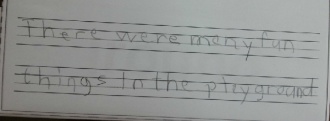 There were meny fun
things In the pleyground